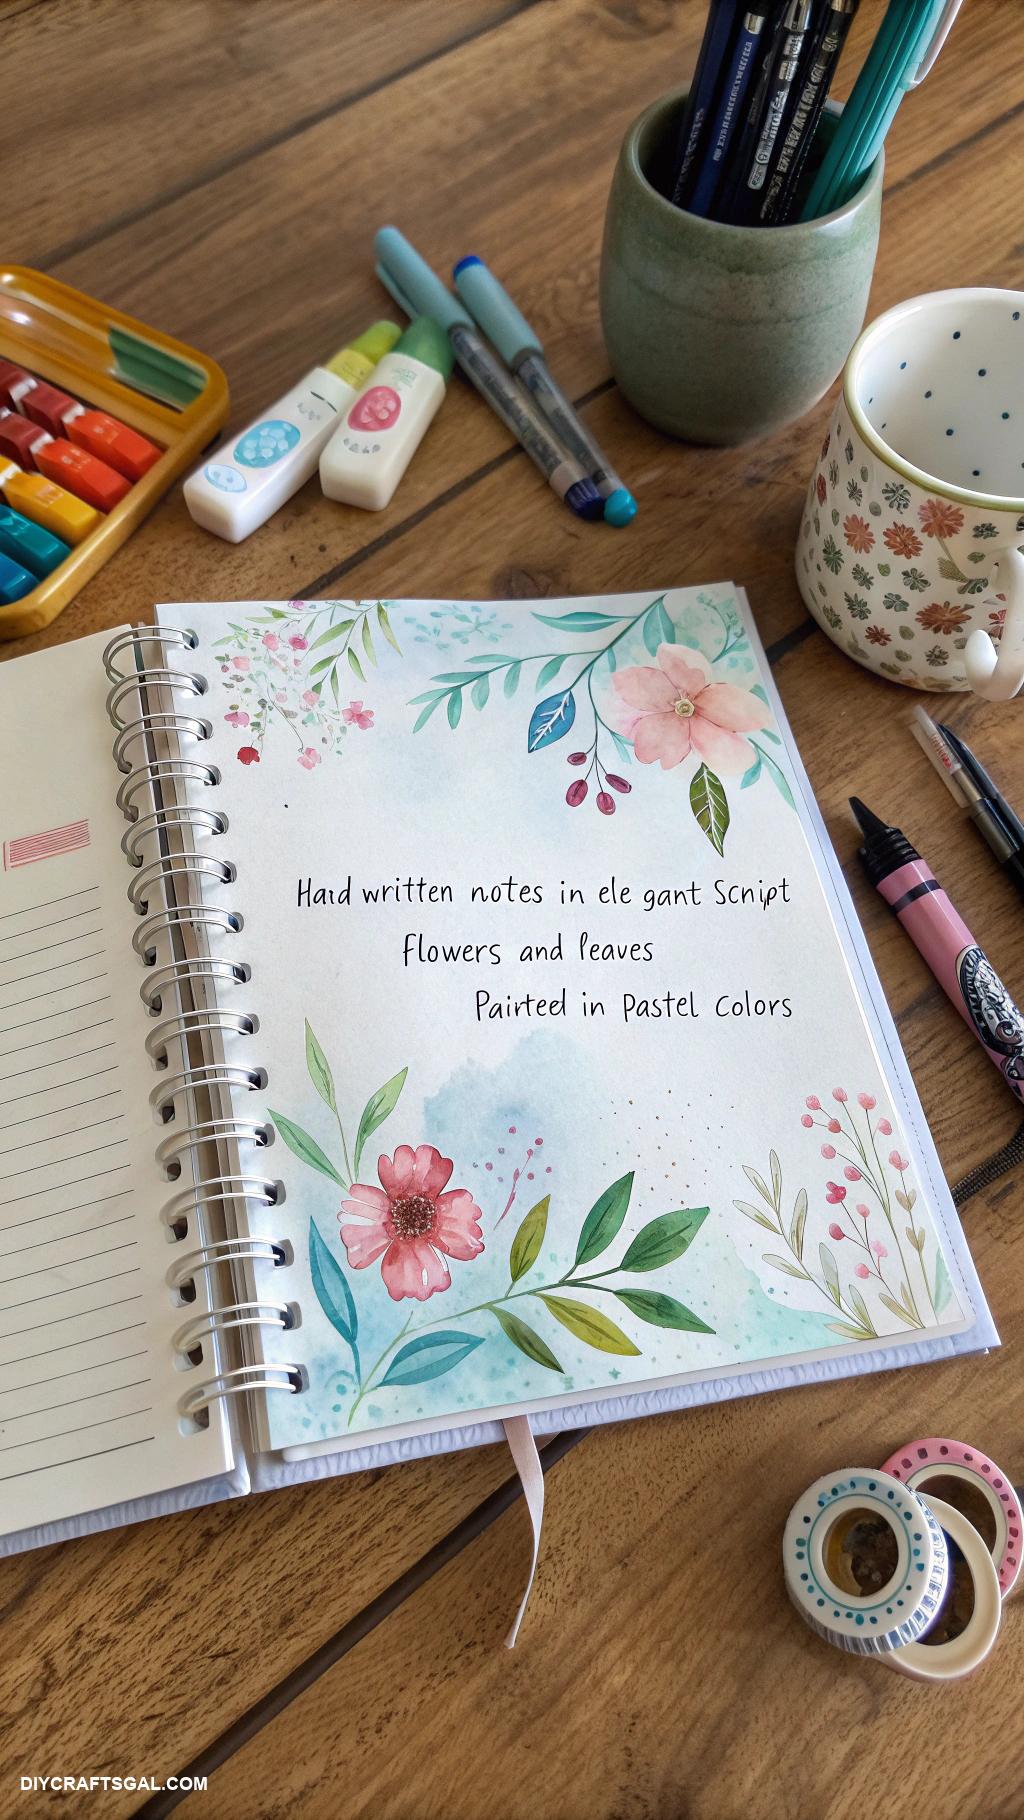 Hard written notes in ele gant Script
Flowers and leaves
Pairted in Pastel Colors
DIYCRAFTSGAL.COM